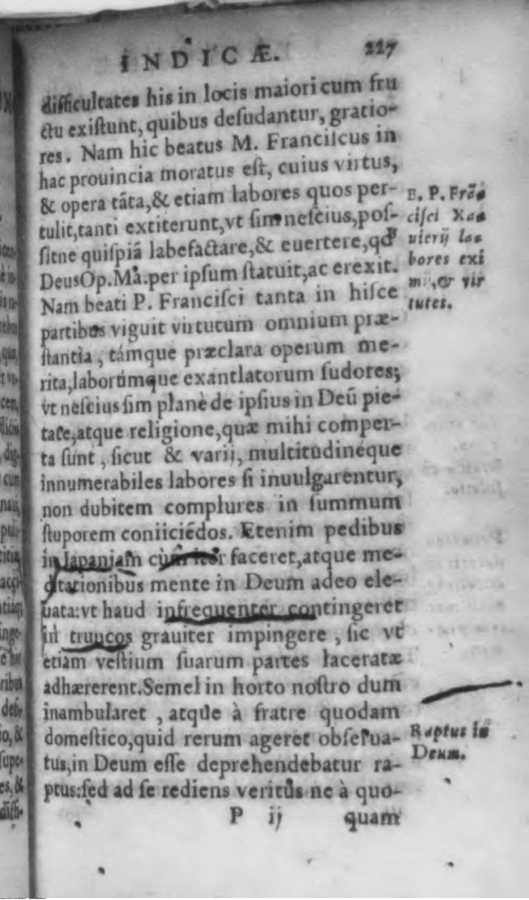 INDICÆ. 227
difficultates his in locis maiori cum fru
ctu existunt, quibus desudantur, gratio-
res. Nam hic beatus M. Franciscus in
hac prouincia moratus est, cuius virtus,
& opera tãta, & etiam labores quos per-
tulit, tanti extiterunt, vt sim nescius, pos-
sitne quispiã labefactare, & euertere, qd
Deus Op. Ma. per ipsum statuit, ac erexit.
Nam beati P. Francisci tanta in hisce
partibus viguit virtutum omnium præ-
stantia, támque præclara operum me-
rita, laborúmque exantlatorum sudores;
vt nescius sim planè de ipsius in Deũ pie-
tate, atque religione, quæ mihi comper-
ta sunt, sicut & varij, multitudinéque
innumerabiles labores si inuulgarentur,
non dubitem complures in summum
stuporem coniiciẽdos. Etenim pedibus
in Iapaniam cùm iter faceret, atque me-
ditationibus mente in Deum adeo ele-
uata: vt haud infrequenter contingeret
in truncos grauiter impingere, sic vt
etiam vestium suarum partes laceratæ
adhærerent. Semel in horto nostro dum
inambularet, atque à fratre quodam
domestico, quid rerum ageret obserua-
tus, in Deum esse deprehendebatur ra-
ptus: sed ad se rediens veritus ne à quo-
P ij quam
B. P. Frã
cisci Xa
uierij la-
bores exi
mij, & vir
tutes.
Raptus in
Deum.